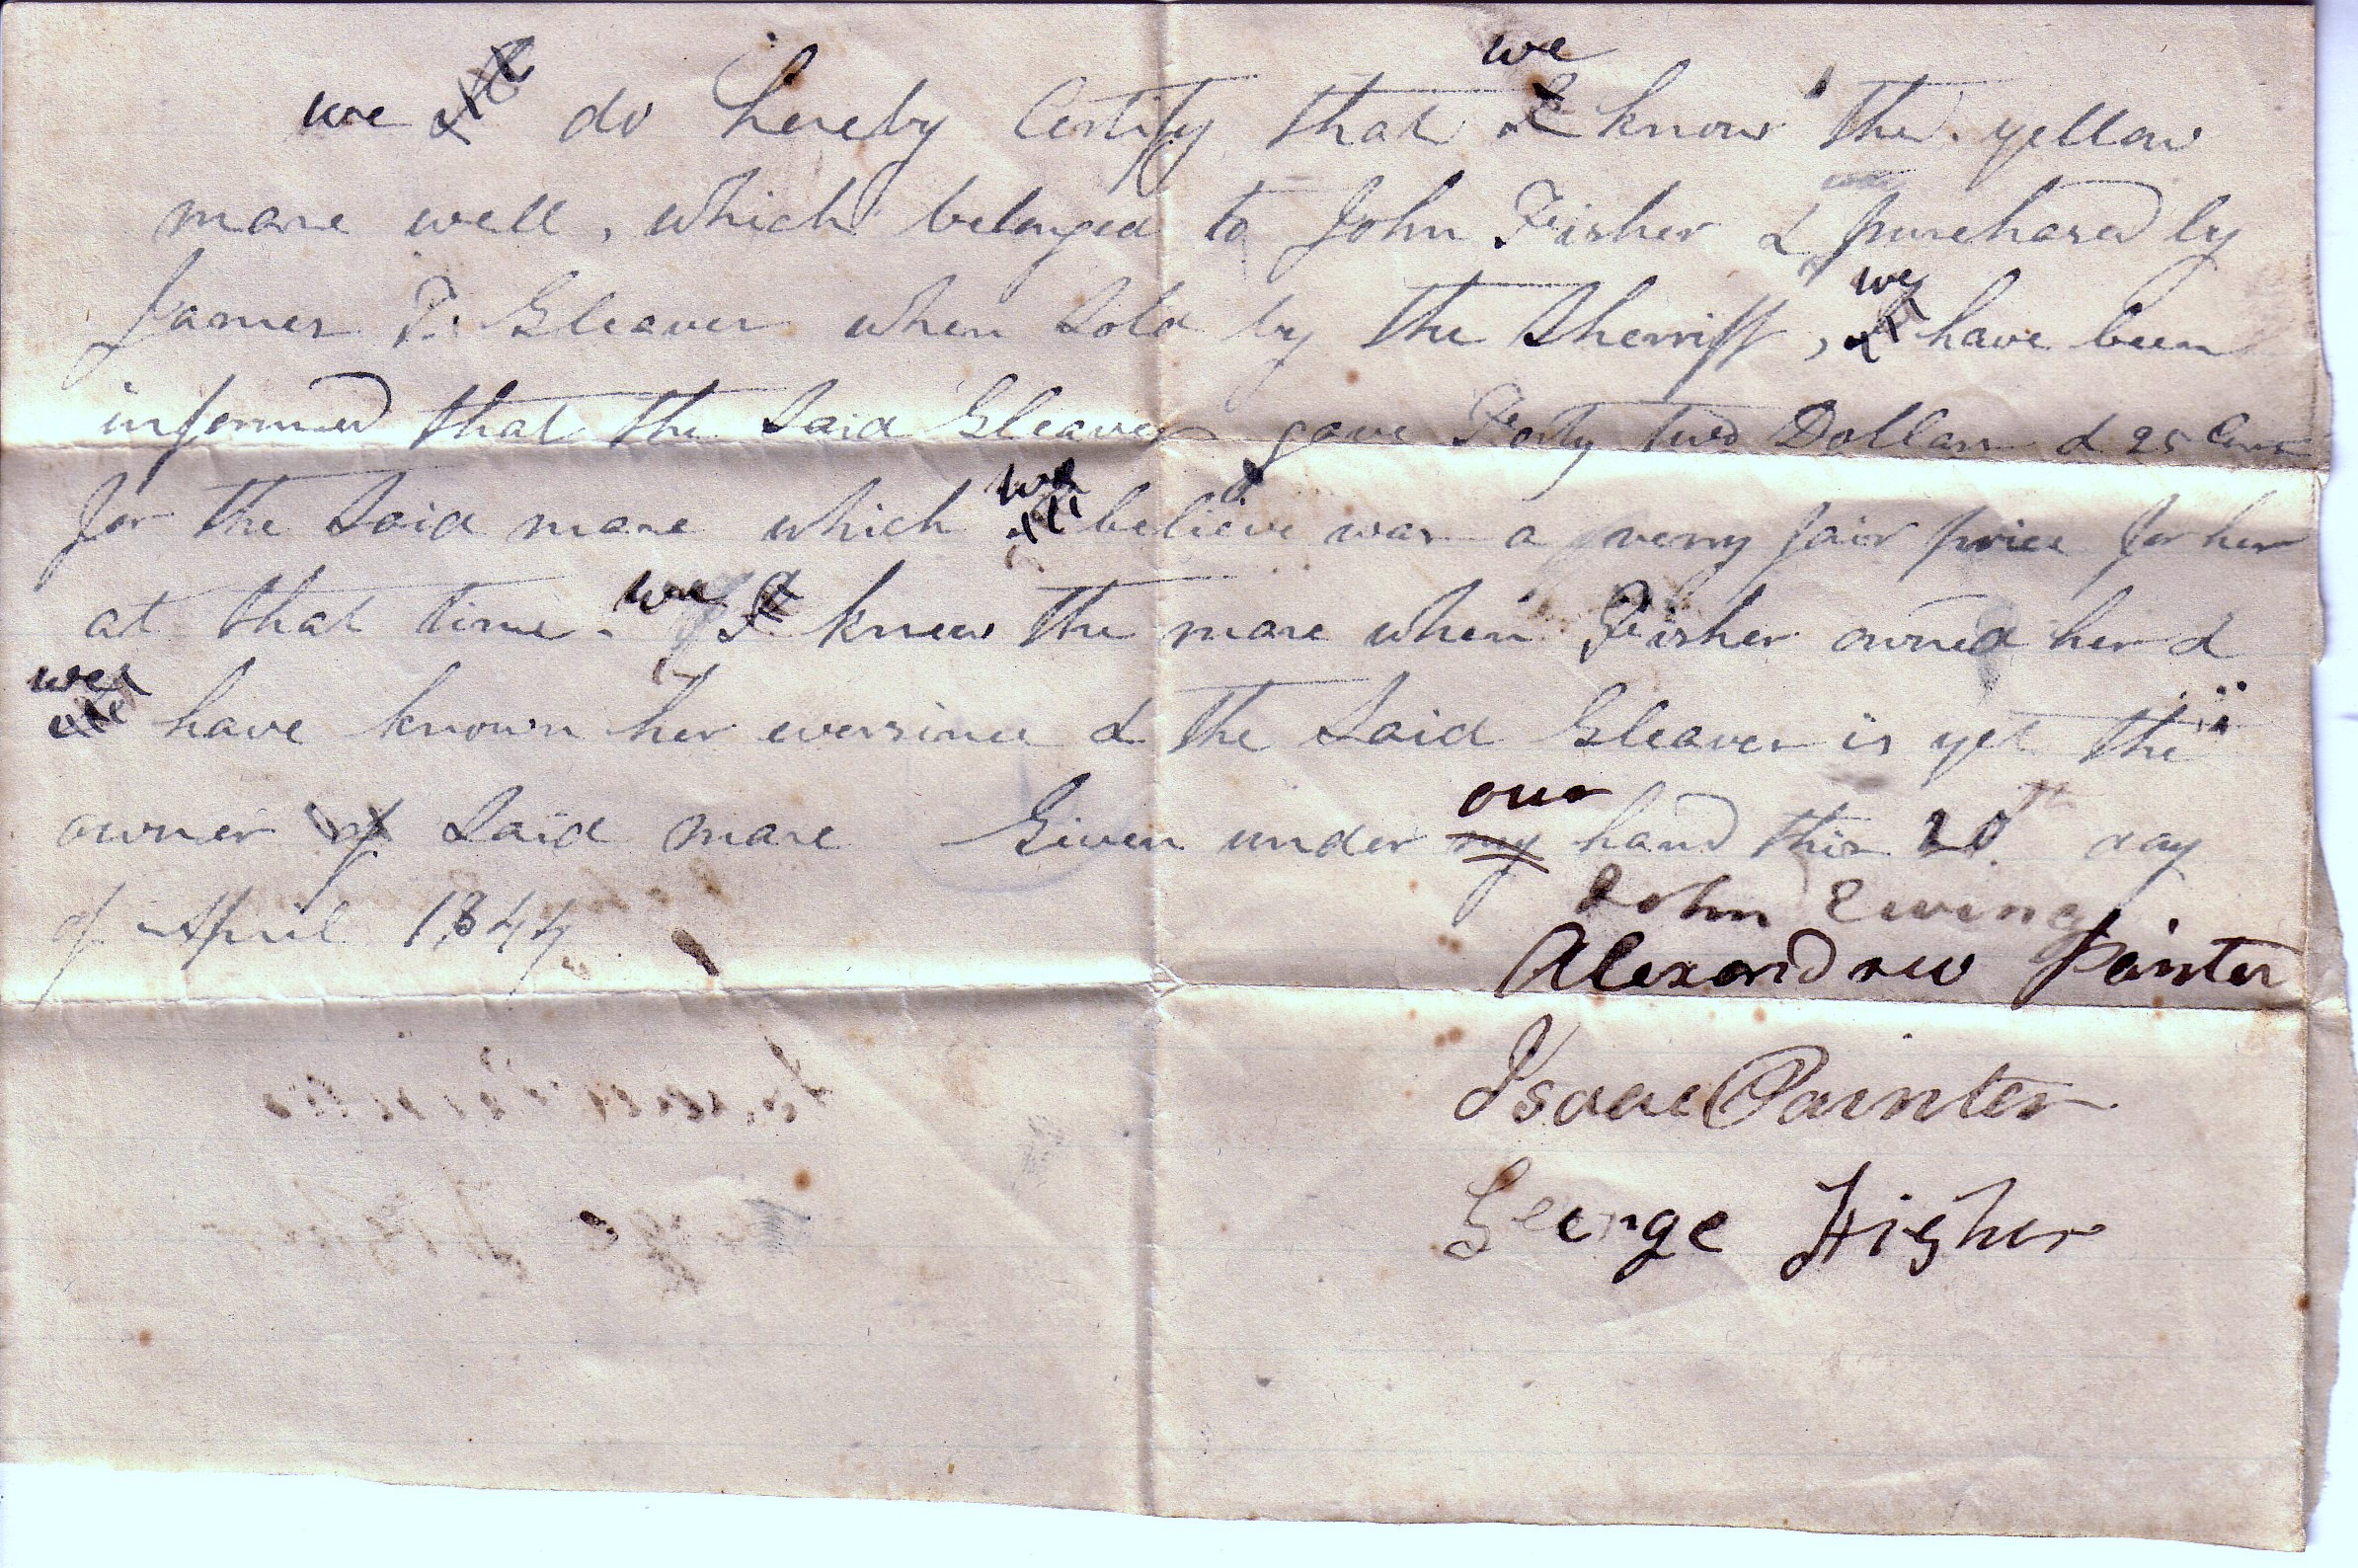 we do hereby Certify that we know the yellow
mare well, which belonged to John Fisher & purchased by
James F. Gleaver when Sold by the Sherriff, we have been
informed that the Said Gleaver gave Forty two Dollars & 25 Cents
for the Said mare which we believe was a very fair price for her
at that time. we knew the mare when Fisher owned her &
we have known her eversince & the Said Gleaver is yet the
owner of Said mare Given under our hand this 20th day
of April 1844
John Ewing
Alexandrew Painter
Isaac Painter
George Fisher